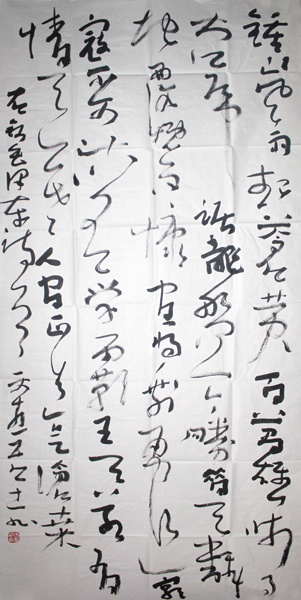 鍾山風雨起蒼黃百萬雄師過
大江虎踞龍盤今勝昔天翻
地覆慨而慷宜將剩勇追窮
寇不可沽名學霸王天若有
情天亦老人間正道是滄桑
毛澤東詩